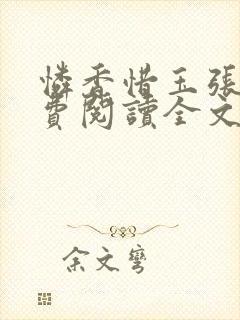 憐香惜玉張
費閱讀全文
余文彎